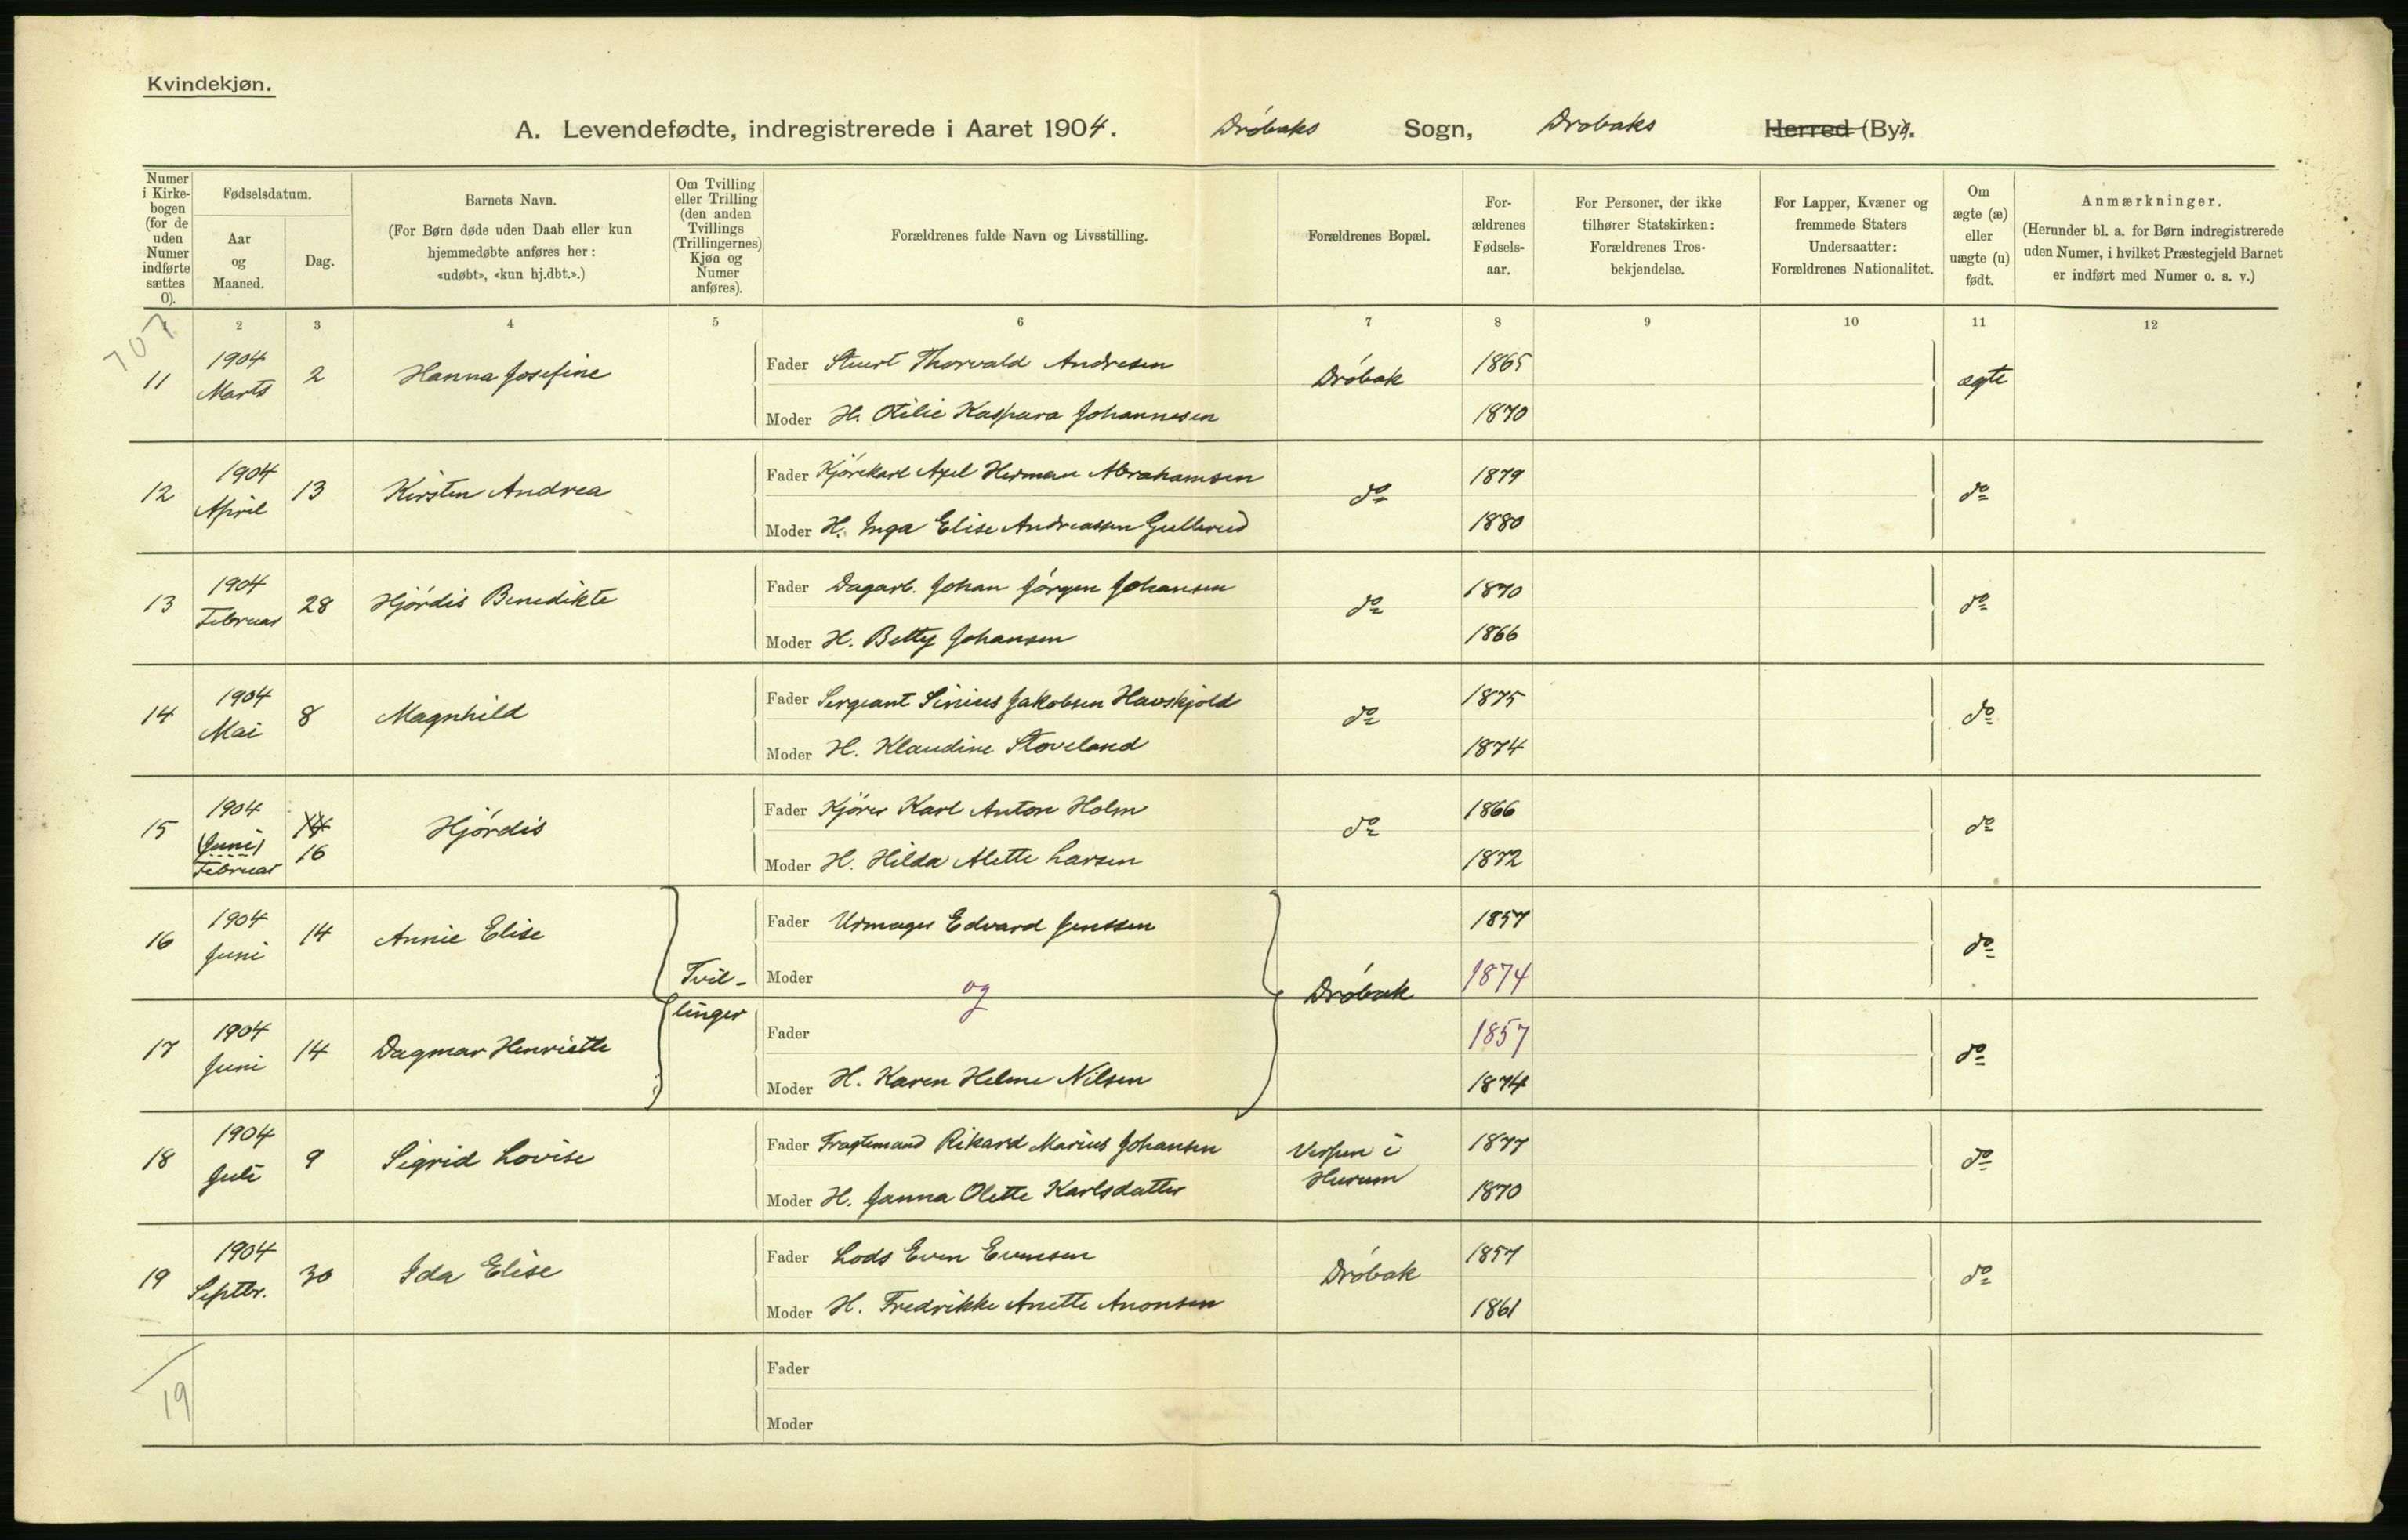 Kvindekjøn.
A. Levendefødte, indregistrerede i Aaret 1904. Drøbaks Sogn, Drøbaks Herred (By).
Numer i Kirke-bogen (for de uden Numer indførte sættes 0).
Fødselsdatum.
Aar og Maaned.
Dag.
Barnets Navn.
(For Børn døde uden Daab eller kun hjemmedøbte anføres her: «udøbt», «kun hj.dbt.».)
Om Tvilling eller Trilling (den anden Tvillings (Trillingernes) Kjøn og Numer anføres).
Forældrenes fulde Navn og Livsstilling.
Forældrenes Bopæl.
For-ældrenes Fødsels-aar.
For Personer, der ikke tilhører Statskirken: Forældrenes Tros-bekjendelse.
For Lapper, Kvæner og fremmede Staters Undersaatter: Forældrenes Nationalitet.
Om ægte (æ) eller uægte (u) født.
Anmærkninger.
(Herunder bl. a. for Børn indregistrerede uden Numer, i hvilket Præstegjeld Barnet er indført med Numer o. s. v.)
707
2 3 4 5 6 7 8 9 10 11 12
11 1904 Marts 2 Hanna Josefine Fader Stuert Thorvald Andresen Drøbak 1865 ægte
Moder H. Otilie Kaspara Johannesen 1870
12 1904 April 13 Kirsten Andrea Fader Kjørekarl Axel Herman Abrahamsen do 1879 do
Moder H. Inga Elise Andreassen Gullerud 1880
13 1904 Februar 28 Hjørdis Benedikte Fader Dagarb. Johan Jørgen Johansen do 1870 do
Moder H. Betty Johansen 1866
14 1904 Mai 8 Magnhild Fader Sergeant Sinius Jakobsen Havskjold do 1875 do
Moder H. Klaudine Stoveland 1874
15 1904 (Juni) Februar 14 16 Hjørdis Fader Kjører Karl Anton Holm do 1866 do
Moder H. Hilda Alette Larsen 1872
16 1904 Juni 14 Annie Elise Tvil- Fader Urmager Edvard Jenssen Drøbak 1857 do
Moder og 1874
17 1904 Juni 14 Dagmar Henriette linger Fader 1857 do
Moder H. Karen Helene Nilsen 1874
18 1904 Juli 9 Sigrid Lovise Fader Fragtemand Rikard Marius Johansen Verpen i Hurum 1877 do
Moder H. Janna Olette Karlsdatter 1870
19 1904 Septbr. 30 Ida Elise Fader Lods Even Evensen Drøbak 1857 do
Moder H. Fredrikke Anette Anonsen 1861
19 Fader
Moder